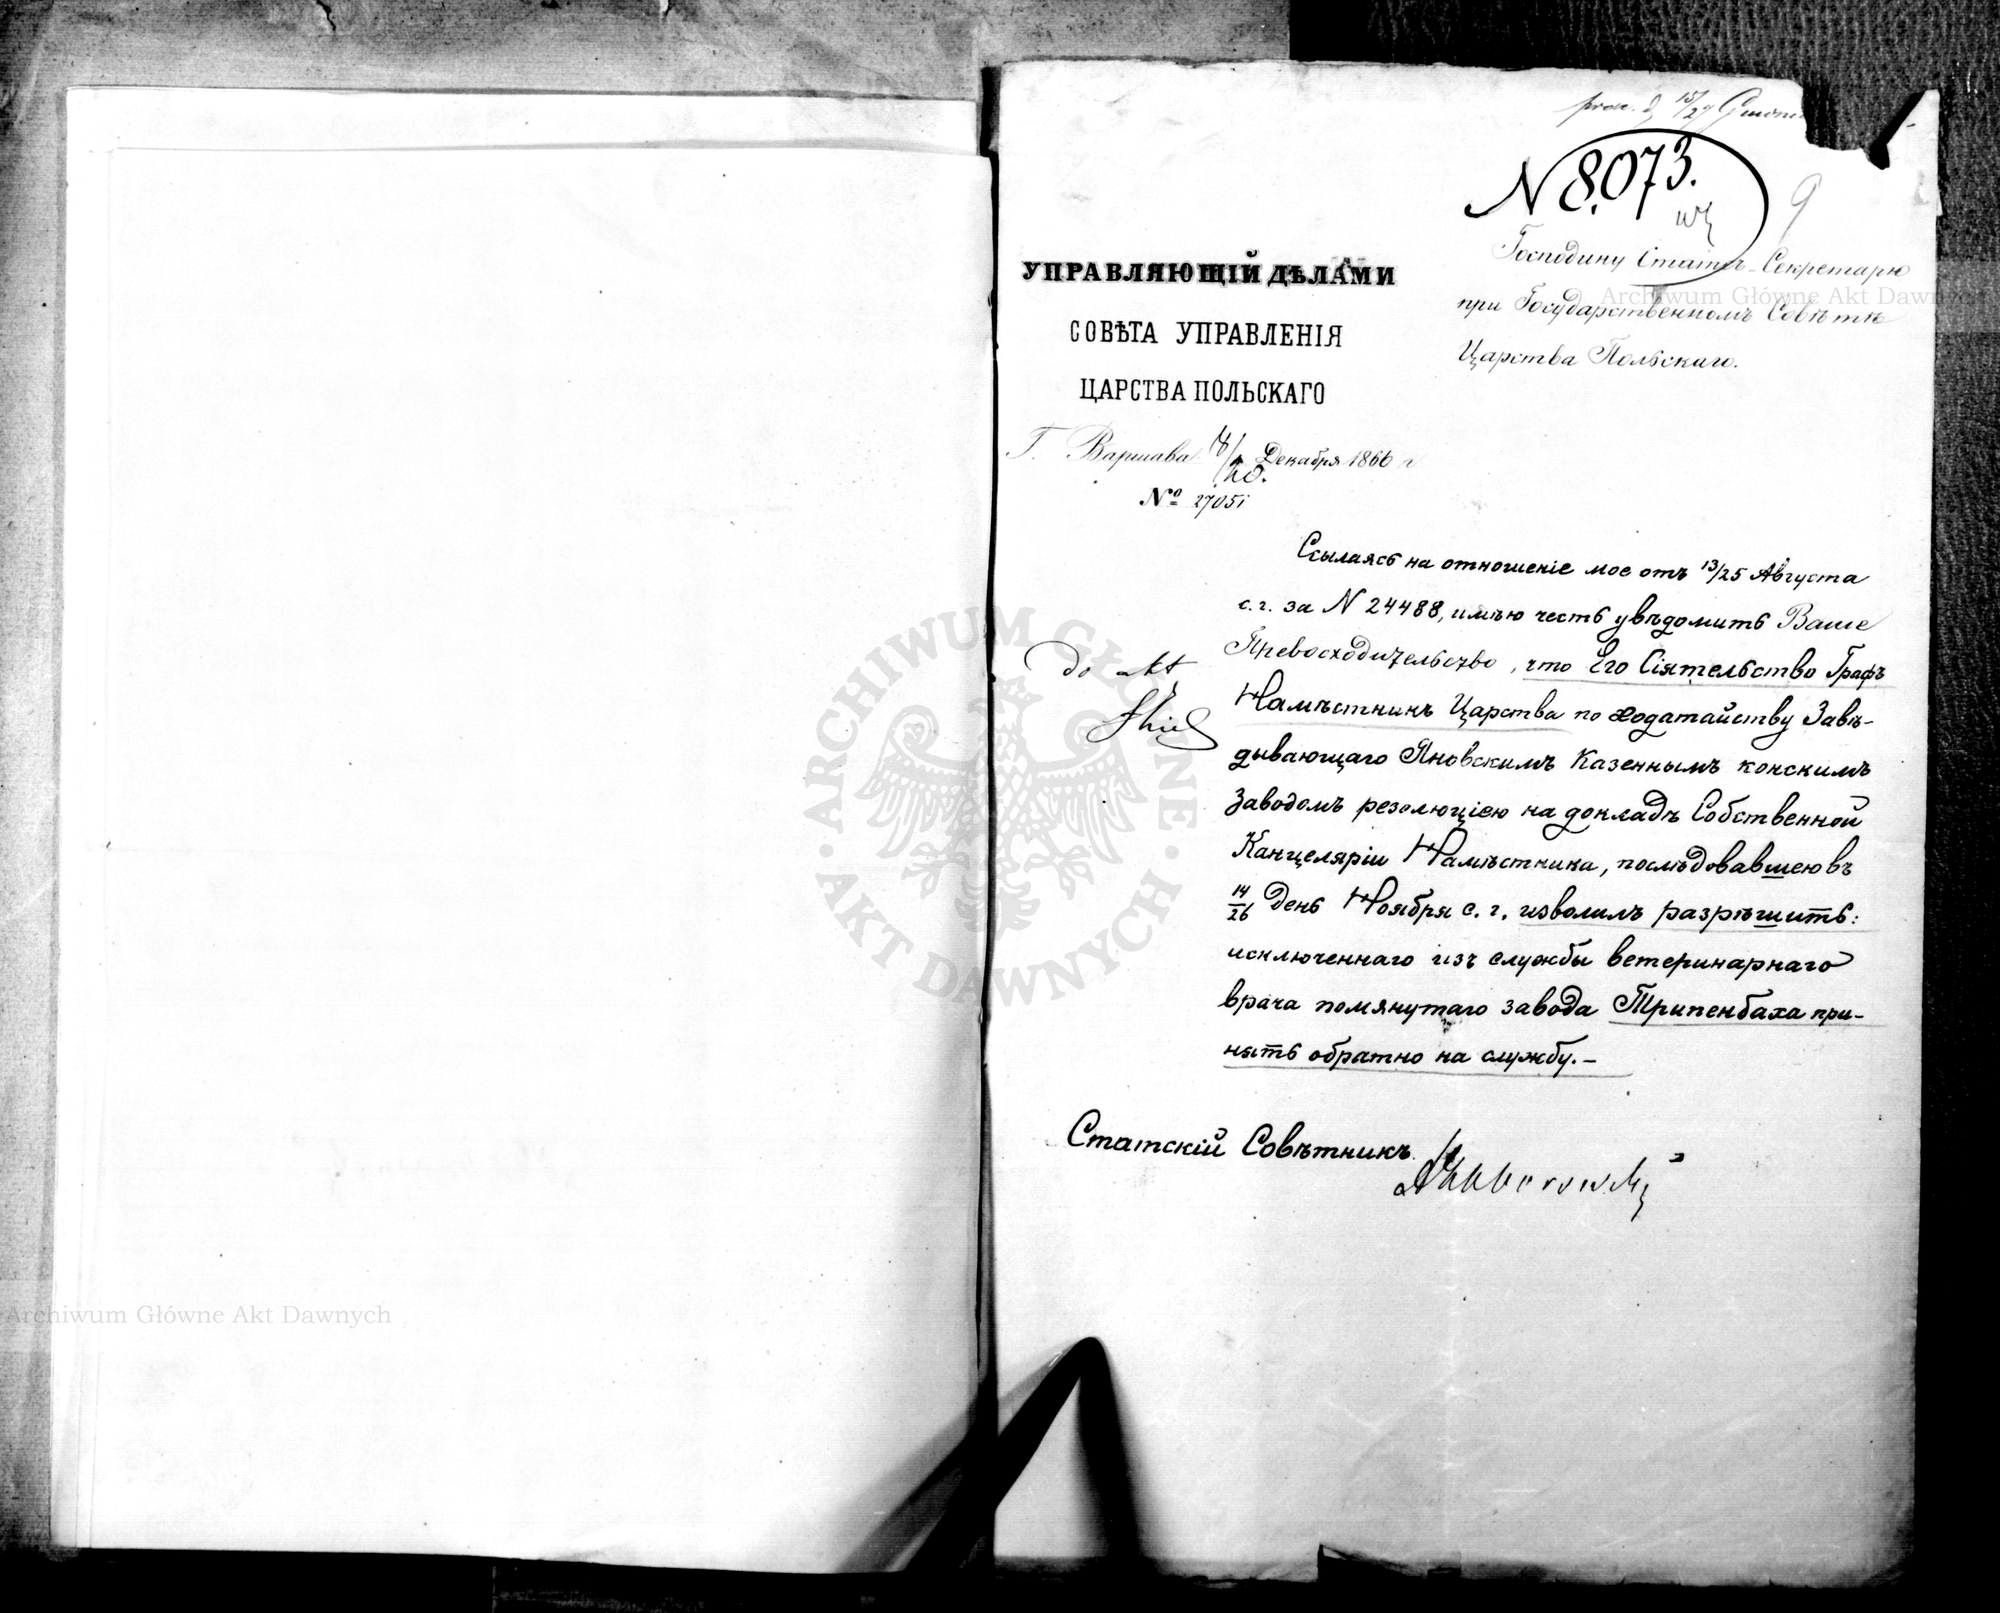 prox. d. 15/27
N 8.073.
9
Господину Статсъ-Секретарю
при Государственномъ Совѣтѣ
Царства Польскаго.
УПРАВЛЯЮЩІЙ ДѢЛАМИ
СОВѢТА УПРАВЛЕНІЯ
ЦАРСТВА ПОЛЬСКАГО
Г. Варшава 8/20. Декабря 1866 г.
№ 27051
Ссылаясь на отношеніе мое отъ 13/25 Августа
с. г. за N 24488, имѣю честь увѣдомить Ваше
Превосходительство, что Его Сіятельство Графъ
Намѣстникъ Царства по ходатайству Завѣ-
дывающаго Яновскимъ Казеннымъ конскимъ
Заводомъ резолюціею на докладъ Собственной
Канцеляріи Намѣстника, послѣдовавшею въ
14/26 день Ноября с. г. изволилъ разрѣшить:
исключеннаго изъ службы ветеринарнаго
врача помянутаго завода Трипенбаха при-
нять обратно на службу. –
do akt
Статскій Совѣтникъ
ARCHIWUM GŁÓWNE AKT DAWNYCH
Archiwum Główne Akt Dawnych
Archiwum Główne Akt Dawnych